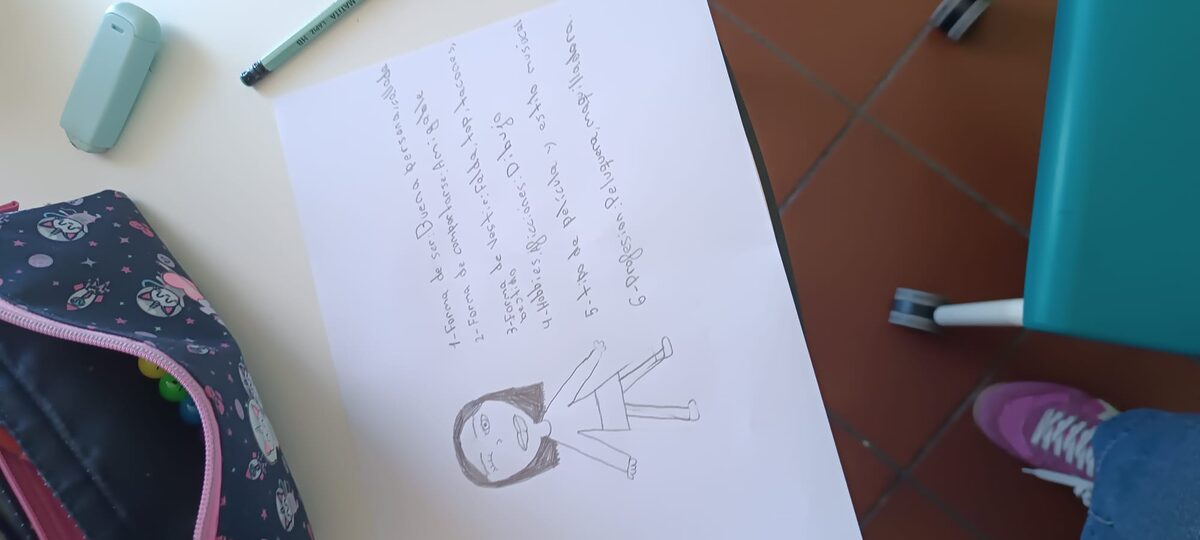 1-Forma de ser: Buena persona, callada
2-Forma de comportarse: Amigable
3-Forma de Vestir: Falda, top, tacones,
vestido
4-Hobbies, Aficciones: Dibujo
5-tipo de pelicula y estilo musical
6-Profesion: Peluquera, maquilladora.
HB